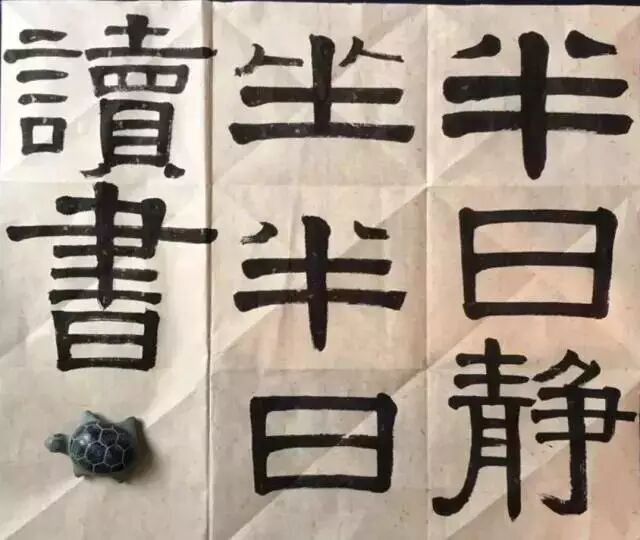 半日静
坐半日
讀書